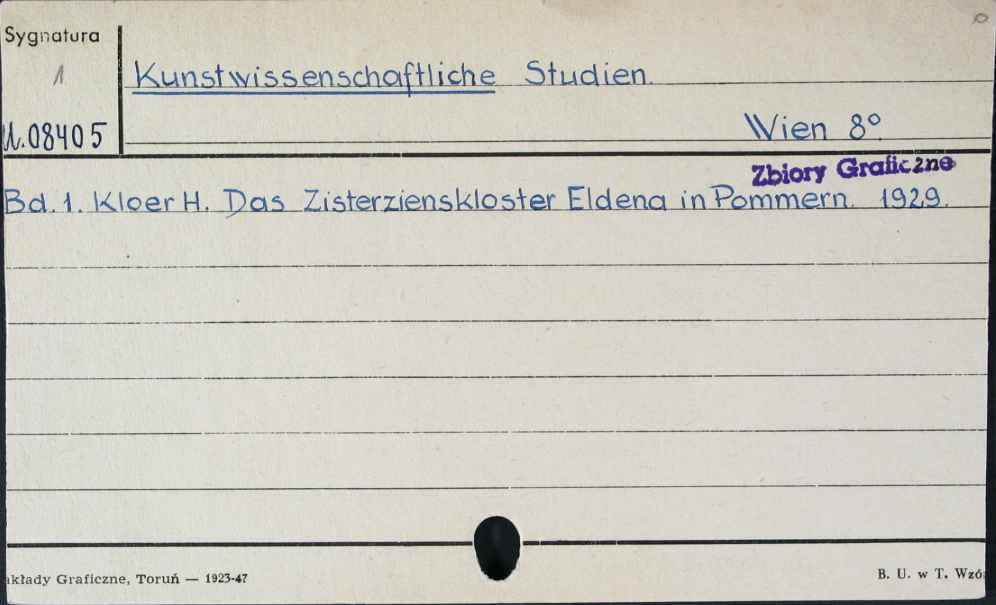 Sygnatura
1
Kunstwissenschaftliche Studien.
U.08405
Wien 8°
Zbiory Graficzne
Bd. 1. Kloer H. Das Zisterzienskloster Eldena in Pommern. 1929.
akłady Graficzne, Toruń — 1923-47
B. U. w T. Wzó